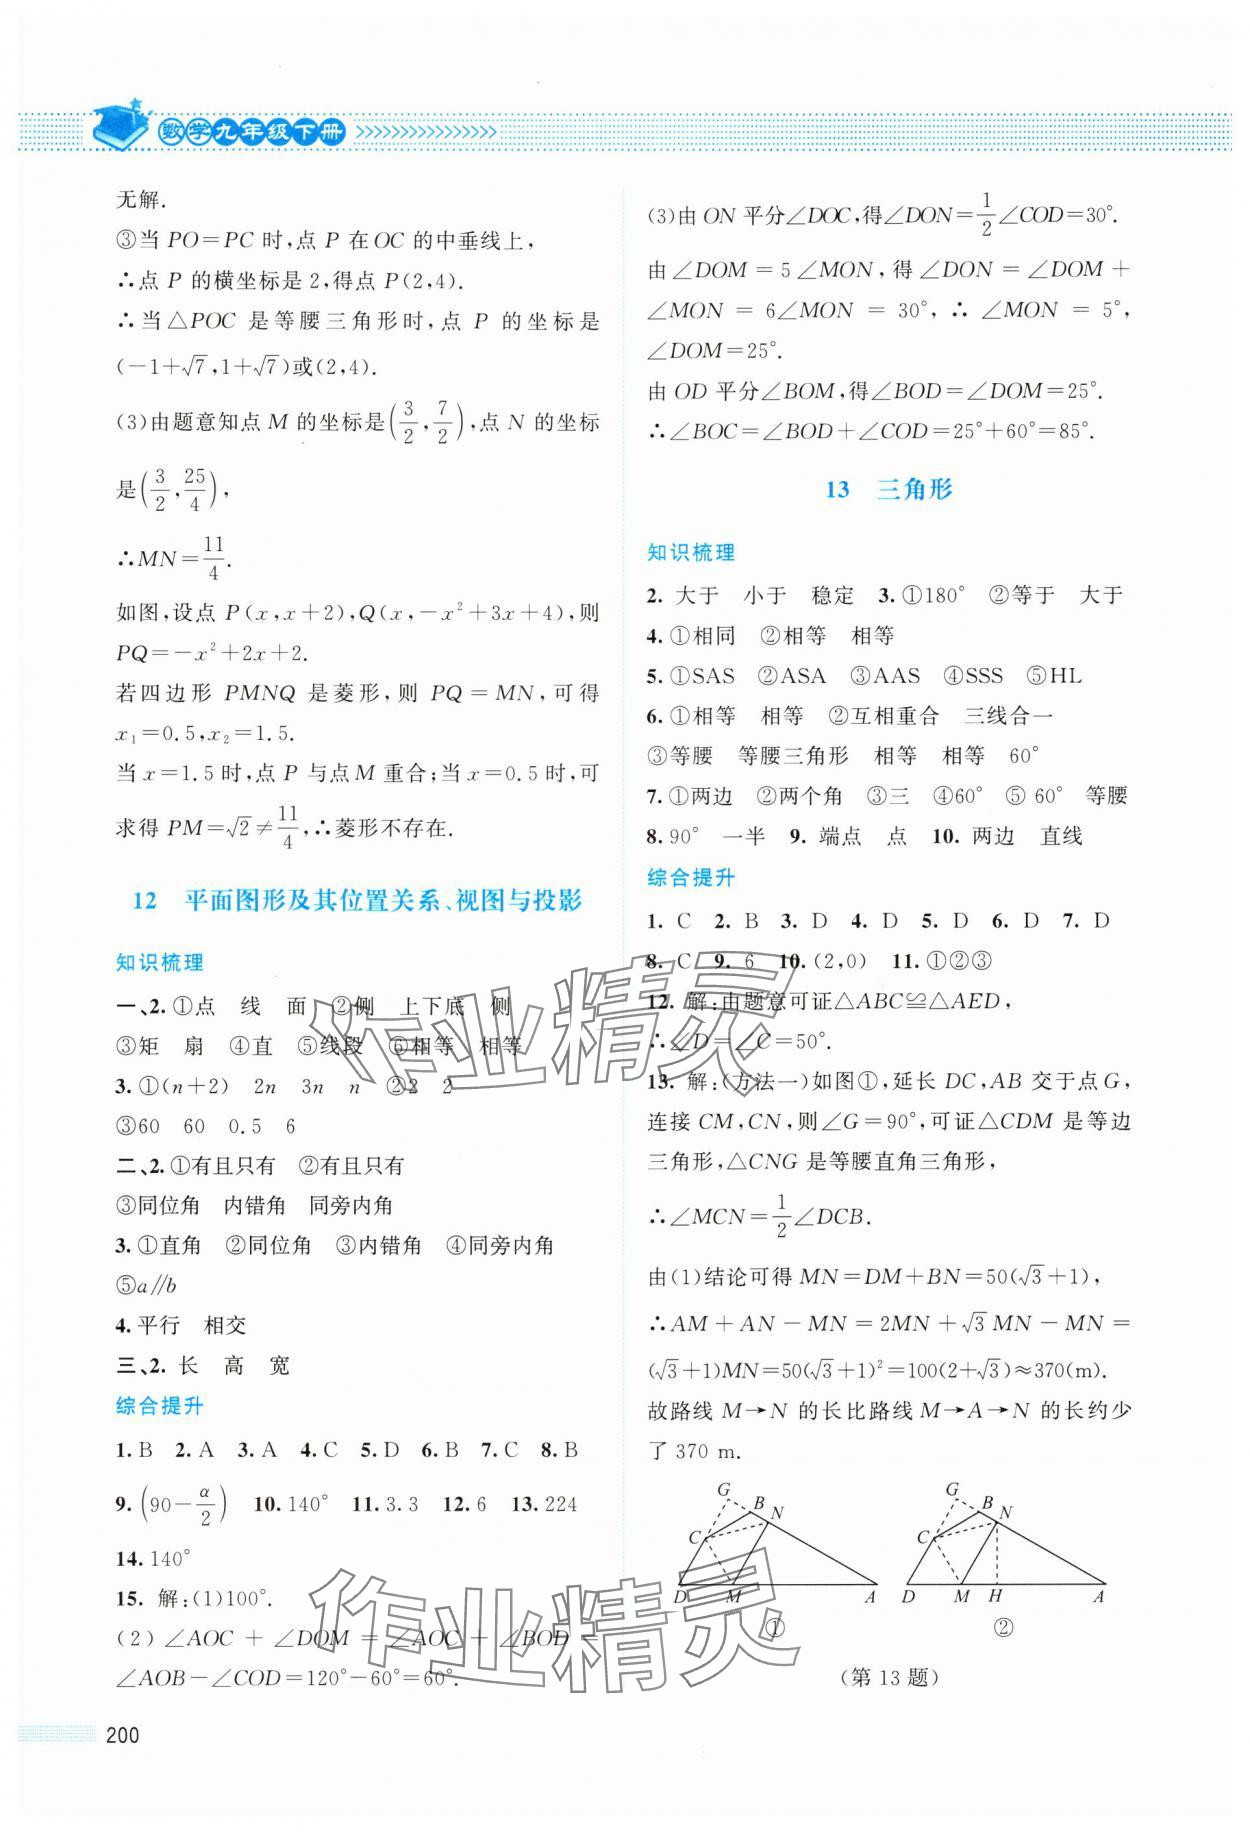 数学九年级下册
无解.
③当 PO=PC 时,点 P 在 OC 的中垂线上,
∴点 P 的横坐标是 2,得点 P(2,4).
∴当△POC 是等腰三角形时,点 P 的坐标是
(-1+√7,1+√7)或(2,4).
(3)由题意知点 M 的坐标是(3/2,7/2),点 N 的坐标
是(3/2,25/4),
∴MN=11/4.
如图,设点 P(x,x+2),Q(x,-x²+3x+4),则
PQ=-x²+2x+2.
若四边形 PMNQ 是菱形,则 PQ=MN,可得
x₁=0.5,x₂=1.5.
当 x=1.5 时,点 P 与点 M 重合;当 x=0.5 时,可
求得 PM=√2≠11/4,∴菱形不存在.
12 平面图形及其位置关系、视图与投影
知识梳理
一、2. ①点 线 面 ②侧 上下底 侧
③矩 扇 ④直 ⑤线段 ⑥相等 相等
3. ①(n+2) 2n 3n n ②2 2
③60 60 0.5 6
二、2. ①有且只有 ②有且只有
③同位角 内错角 同旁内角
3. ①直角 ②同位角 ③内错角 ④同旁内角
⑤a∥b
4. 平行 相交
三、2. 长 高 宽
综合提升
1. B 2. A 3. A 4. C 5. D 6. B 7. C 8. B
9. (90-α/2) 10. 140° 11. 3.3 12. 6 13. 224
14. 140°
15. 解:(1)100°.
(2)∠AOC+∠DOM=∠AOC+∠BOD=
∠AOB-∠COD=120°-60°=60°.
(3)由 ON 平分∠DOC,得∠DON=1/2∠COD=30°.
由∠DOM=5∠MON,得∠DON=∠DOM+
∠MON=6∠MON=30°,∴∠MON=5°,
∠DOM=25°.
由 OD 平分∠BOM,得∠BOD=∠DOM=25°.
∴∠BOC=∠BOD+∠COD=25°+60°=85°.
13 三角形
知识梳理
2. 大于 小于 稳定 3. ①180° ②等于 大于
4. ①相同 ②相等 相等
5. ①SAS ②ASA ③AAS ④SSS ⑤HL
6. ①相等 相等 ②互相重合 三线合一
③等腰 等腰三角形 相等 相等 60°
7. ①两边 ②两个角 ③三 ④60° ⑤60° 等腰
8. 90° 一半 9. 端点 点 10. 两边 直线
综合提升
1. C 2. B 3. D 4. D 5. D 6. D 7. D
8. C 9. 6 10. (2,0) 11. ①②③
12. 解:由题意可证△ABC≌△AED,
∴∠D=∠C=50°.
13. 解:(方法一)如图①,延长 DC,AB 交于点 G,
连接 CM,CN,则∠G=90°,可证△CDM 是等边
三角形,△CNG 是等腰直角三角形,
∴∠MCN=1/2∠DCB.
由(1)结论可得 MN=DM+BN=50(√3+1),
∴AM+AN-MN=2MN+√3MN-MN=
(√3+1)MN=50(√3+1)²=100(2+√3)≈370(m).
故路线 M→N 的长比路线 M→A→N 的长约少
了 370 m.
G B N C D M A
①
G B N C D M H A
②
(第 13 题)
作业精灵
作业精灵
200